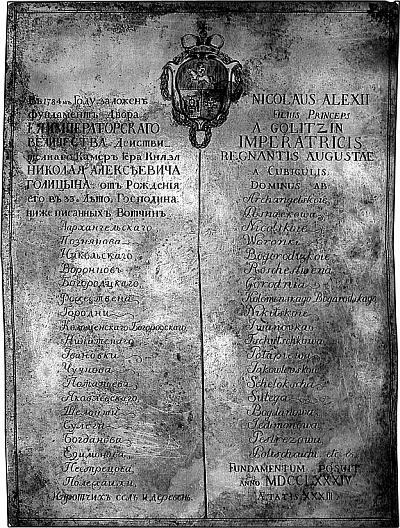 Въ 1784мъ Году заложенъ
фундаментъ Двора
ЕЯ ИМПЕРАТОРСКАГО
ВЕЛИЧЕСТВА Действи
телнаго Камеръ Гера Князя
НИКОЛАЯ АЛЕКСѢЕВИЧА
ГОЛИЦЫНА; отъ Рожденія
его въ 33. Лѣто, Господина
ниже писанныхъ Вотчинъ
Архангельскаго
Познякова
Никольскаго
Воронковъ
Богородцкаго
Рождествена
Городни
Коломенскаго Богородскаго
Никитскаго
Ивановки
Чучкова
Потапцева
Яковлевскаго
Сулега
Богданова
Едимонова
Пестрецова
и протчихъ селъ и деревень.
NICOLAUS ALEXII
FILIUS PRINCEPS
A GOLITZIN
IMPERATRICIS
REGNANTIS AUGUSTAE
A CUBICULIS
DOMINUS AB
Archangelskoie
Posnaekowa
Nicolskoie
Woronki
Bogorodizkoie
Roschestwena
Gorodnia
Kolomenskago Bogorodskago
Nikitskoie
Iwanowka
Potapzewa
Jakowlewskoie
Schelokscha
Sulega
Bogdanowa
Jedimonowa
Pestrezowa
FUNDAMENTUM POSUIT
ANNO MDCCLXXXIV
ÆTATIS XXXIII